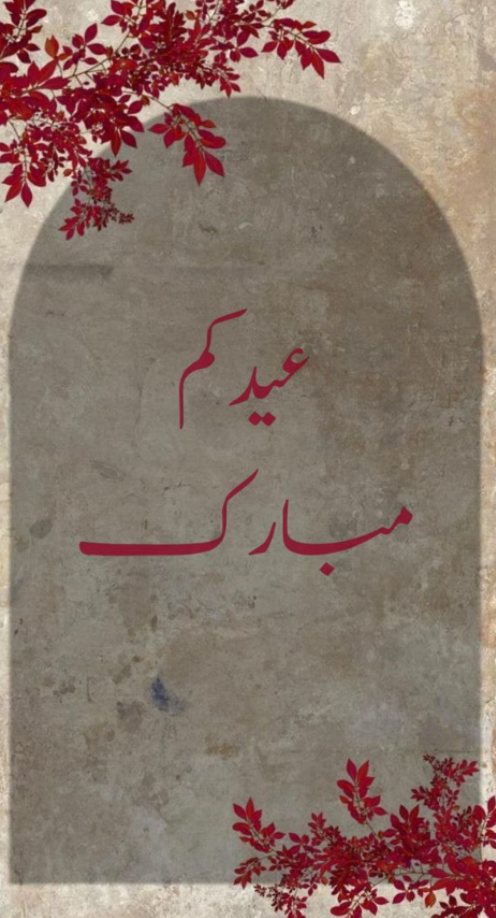 عیدکم
مبارک